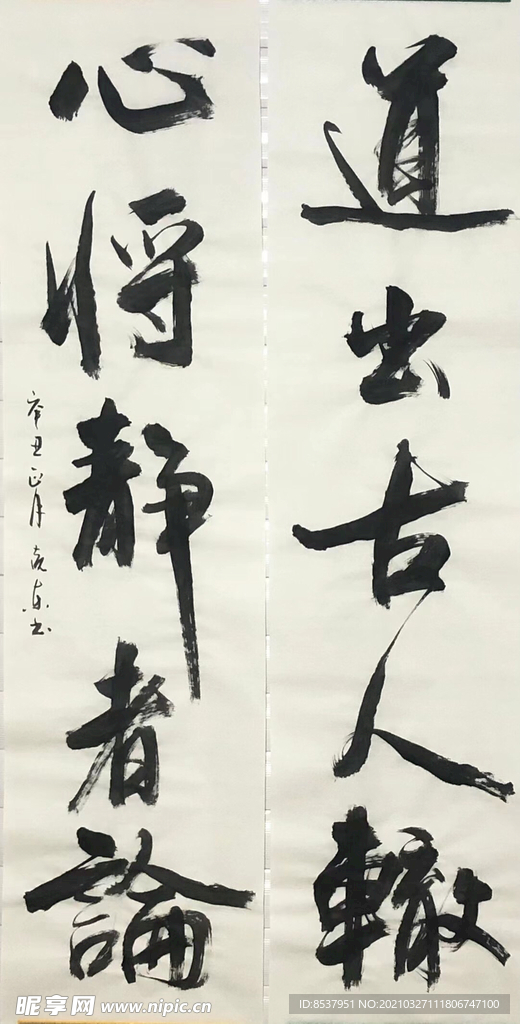 道出古人轍
心將靜者論
辛丑正月
昵享网 www.nipic.cn
ID:8537951 NO:20210327111806747100